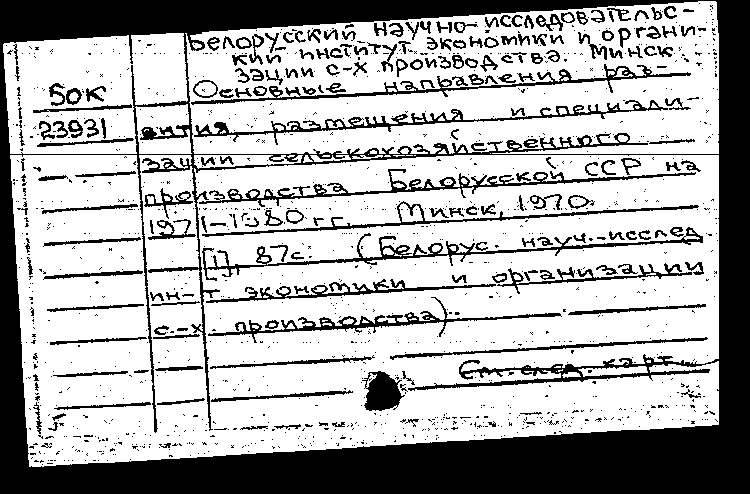 Белорусский научно-исследовательс-
кий институт экономики и органи-
зации с-х производства. Минск.
Основные направления раз-
50К
23931
вития, размещения и специали-
зации сельскохозяйственного
производства Белорусской ССР на
1971-1980 гг. Минск, 1970.
[1], 87с. (Белорус. науч.-исслед.
ин-т экономики и организации
с.-х. производства).
См. след. карт.